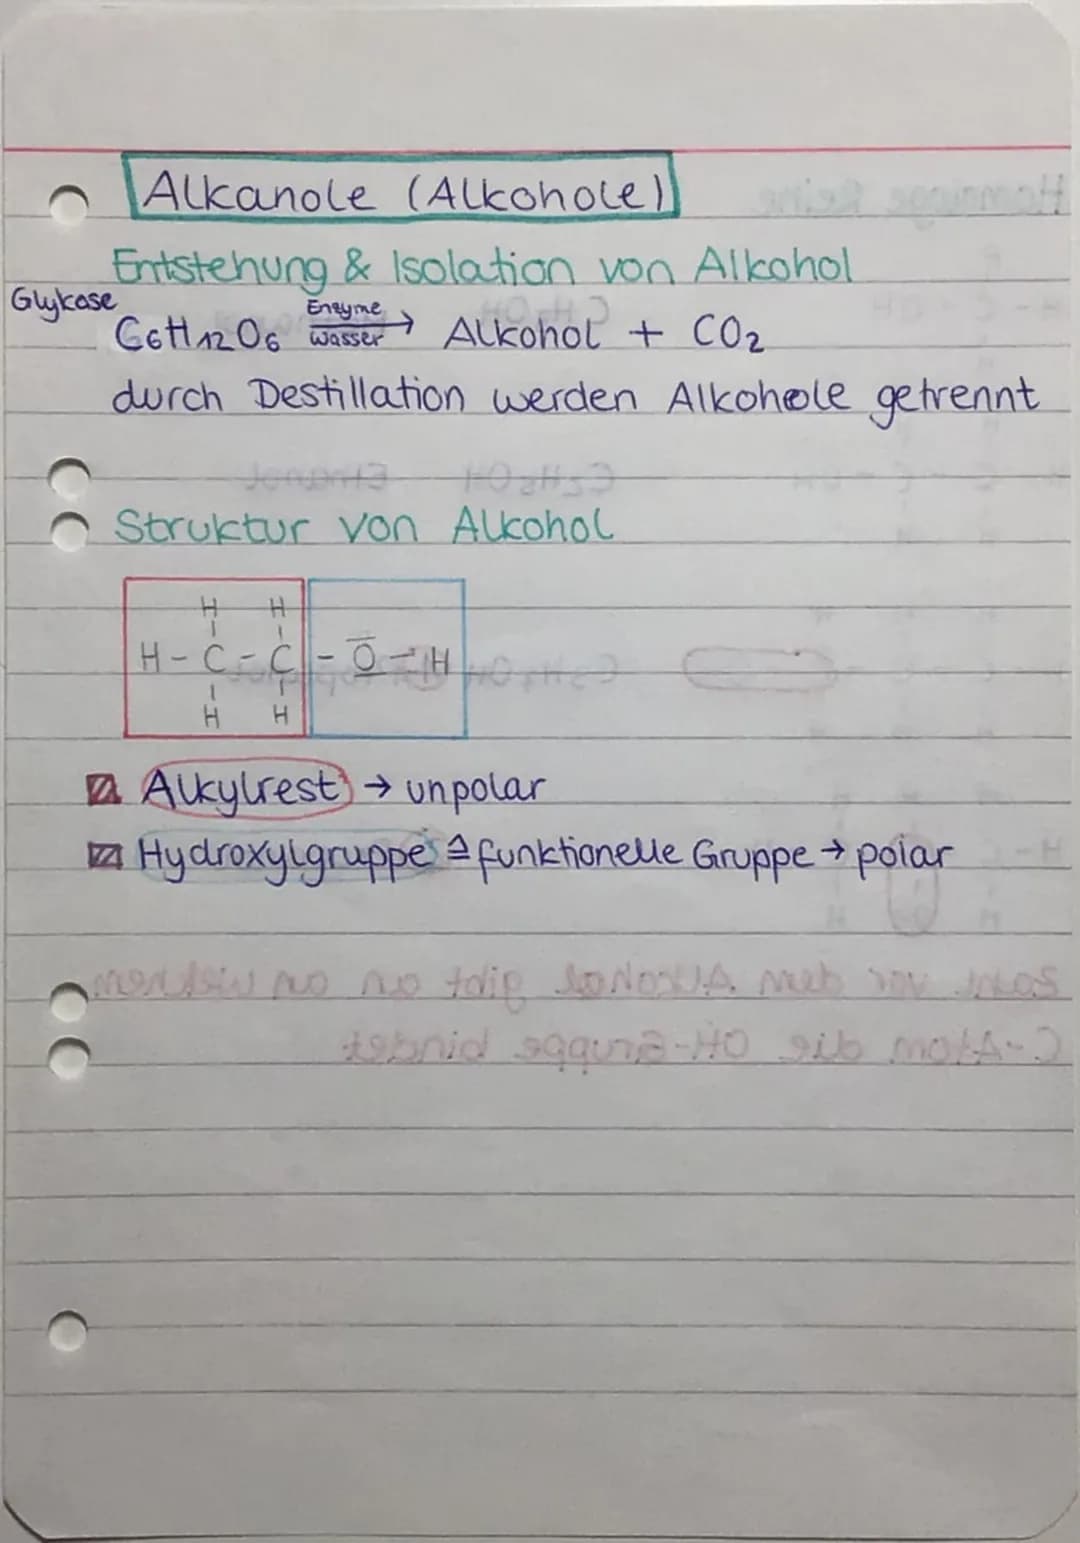 Alkanole (Alkohole)
Entstehung & Isolation von Alkohol
Glykose
C6H12O6 Enzyme Wasser → Alkohol + CO2
durch Destillation werden Alkohole getrennt
Struktur von Alkohol
H H
H-C-C-O-H
H H
Alkylrest → unpolar
Hydroxylgruppe ≙ funktionelle Gruppe → polar